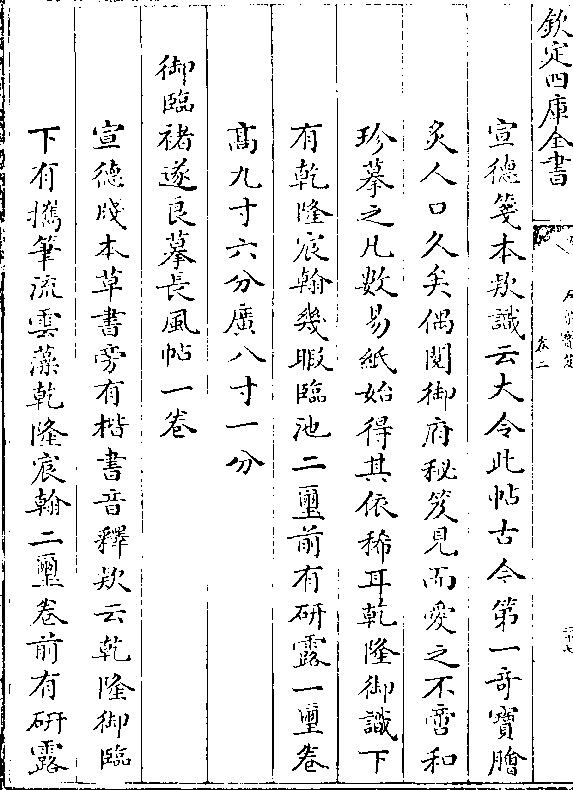 欽定四庫全書
石渠寶笈
卷二
二十七
宣德箋本款識云大令此帖古今第一奇寶膾
炙人口久矣偶閱御府秘笈見而愛之不啻和
珍摹之凡數易紙始得其依稀耳乾隆御識下
有乾隆宸翰幾暇臨池二璽前有研露一璽卷
高九寸六分廣八寸一分
御臨褚遂良摹長風帖一卷
宣德牋本草書旁有楷書音釋款云乾隆御臨
下有攡筆流雲藻乾隆宸翰二璽卷前有研露